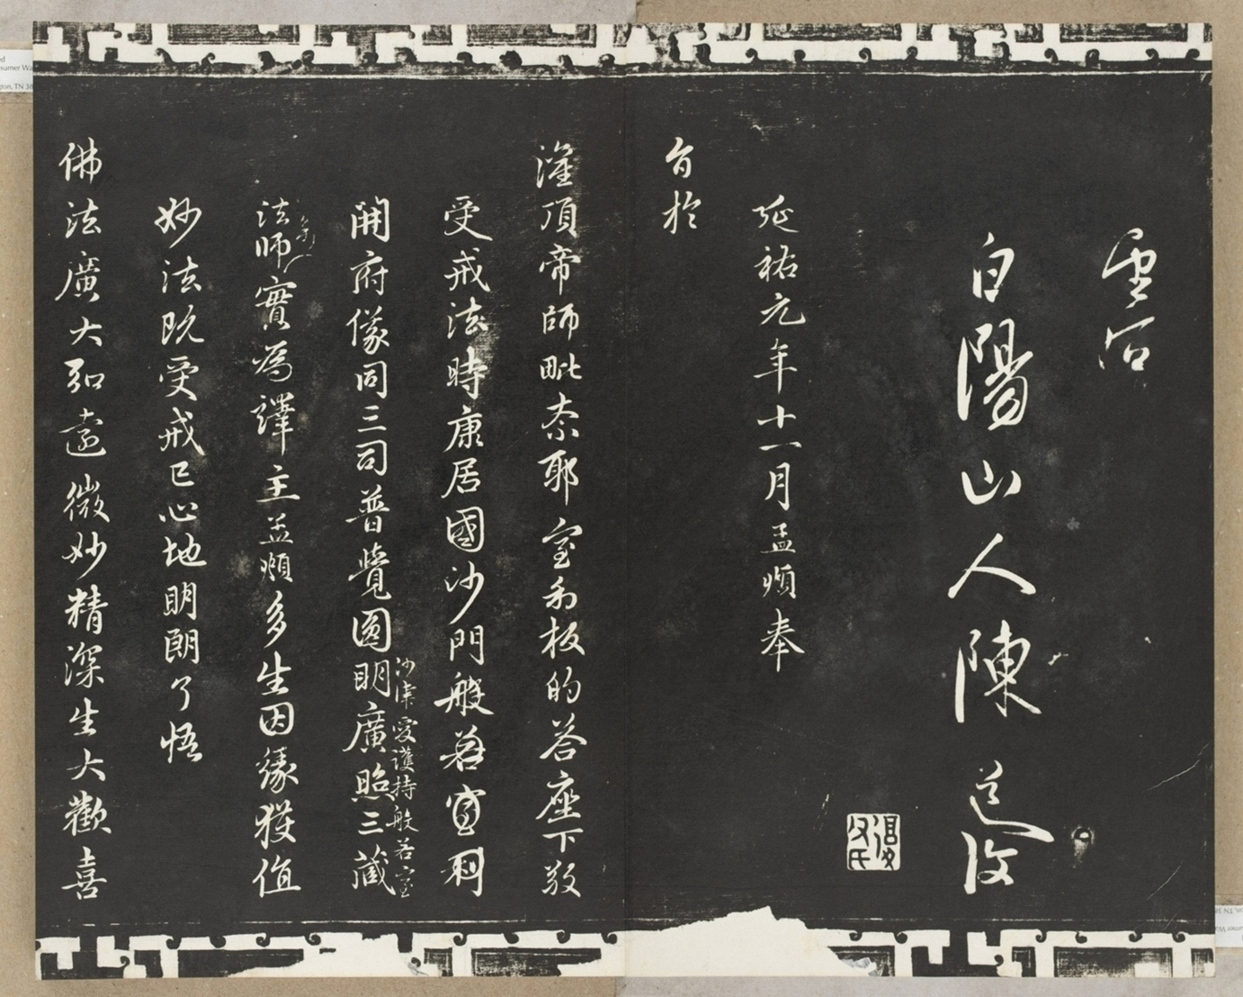 白陽山人陳道復
延祐元年十一月孟頫奉
旨於
灌頂帝師毗奈耶室利板的答座下敬
受戒法時康居國沙門般若室利
沙律愛護持般若室
開府儀同三司普覺圓明廣照三藏
法師實為譯主孟頫多生因緣獲值
妙法既受戒已心地明朗了悟
佛法廣大弘遠微妙精深生大歡喜